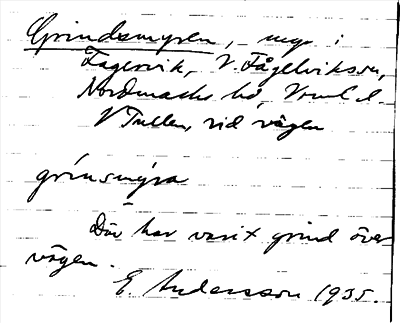 Grindsmyren, myr i
Fagervik, V. Fågelviks sn,
Nordmarks hd, Vrml. l.
V Tullen, vid vägen
grínsmýra
Där har varit grind över
vägen.
E. Andersson 1935.